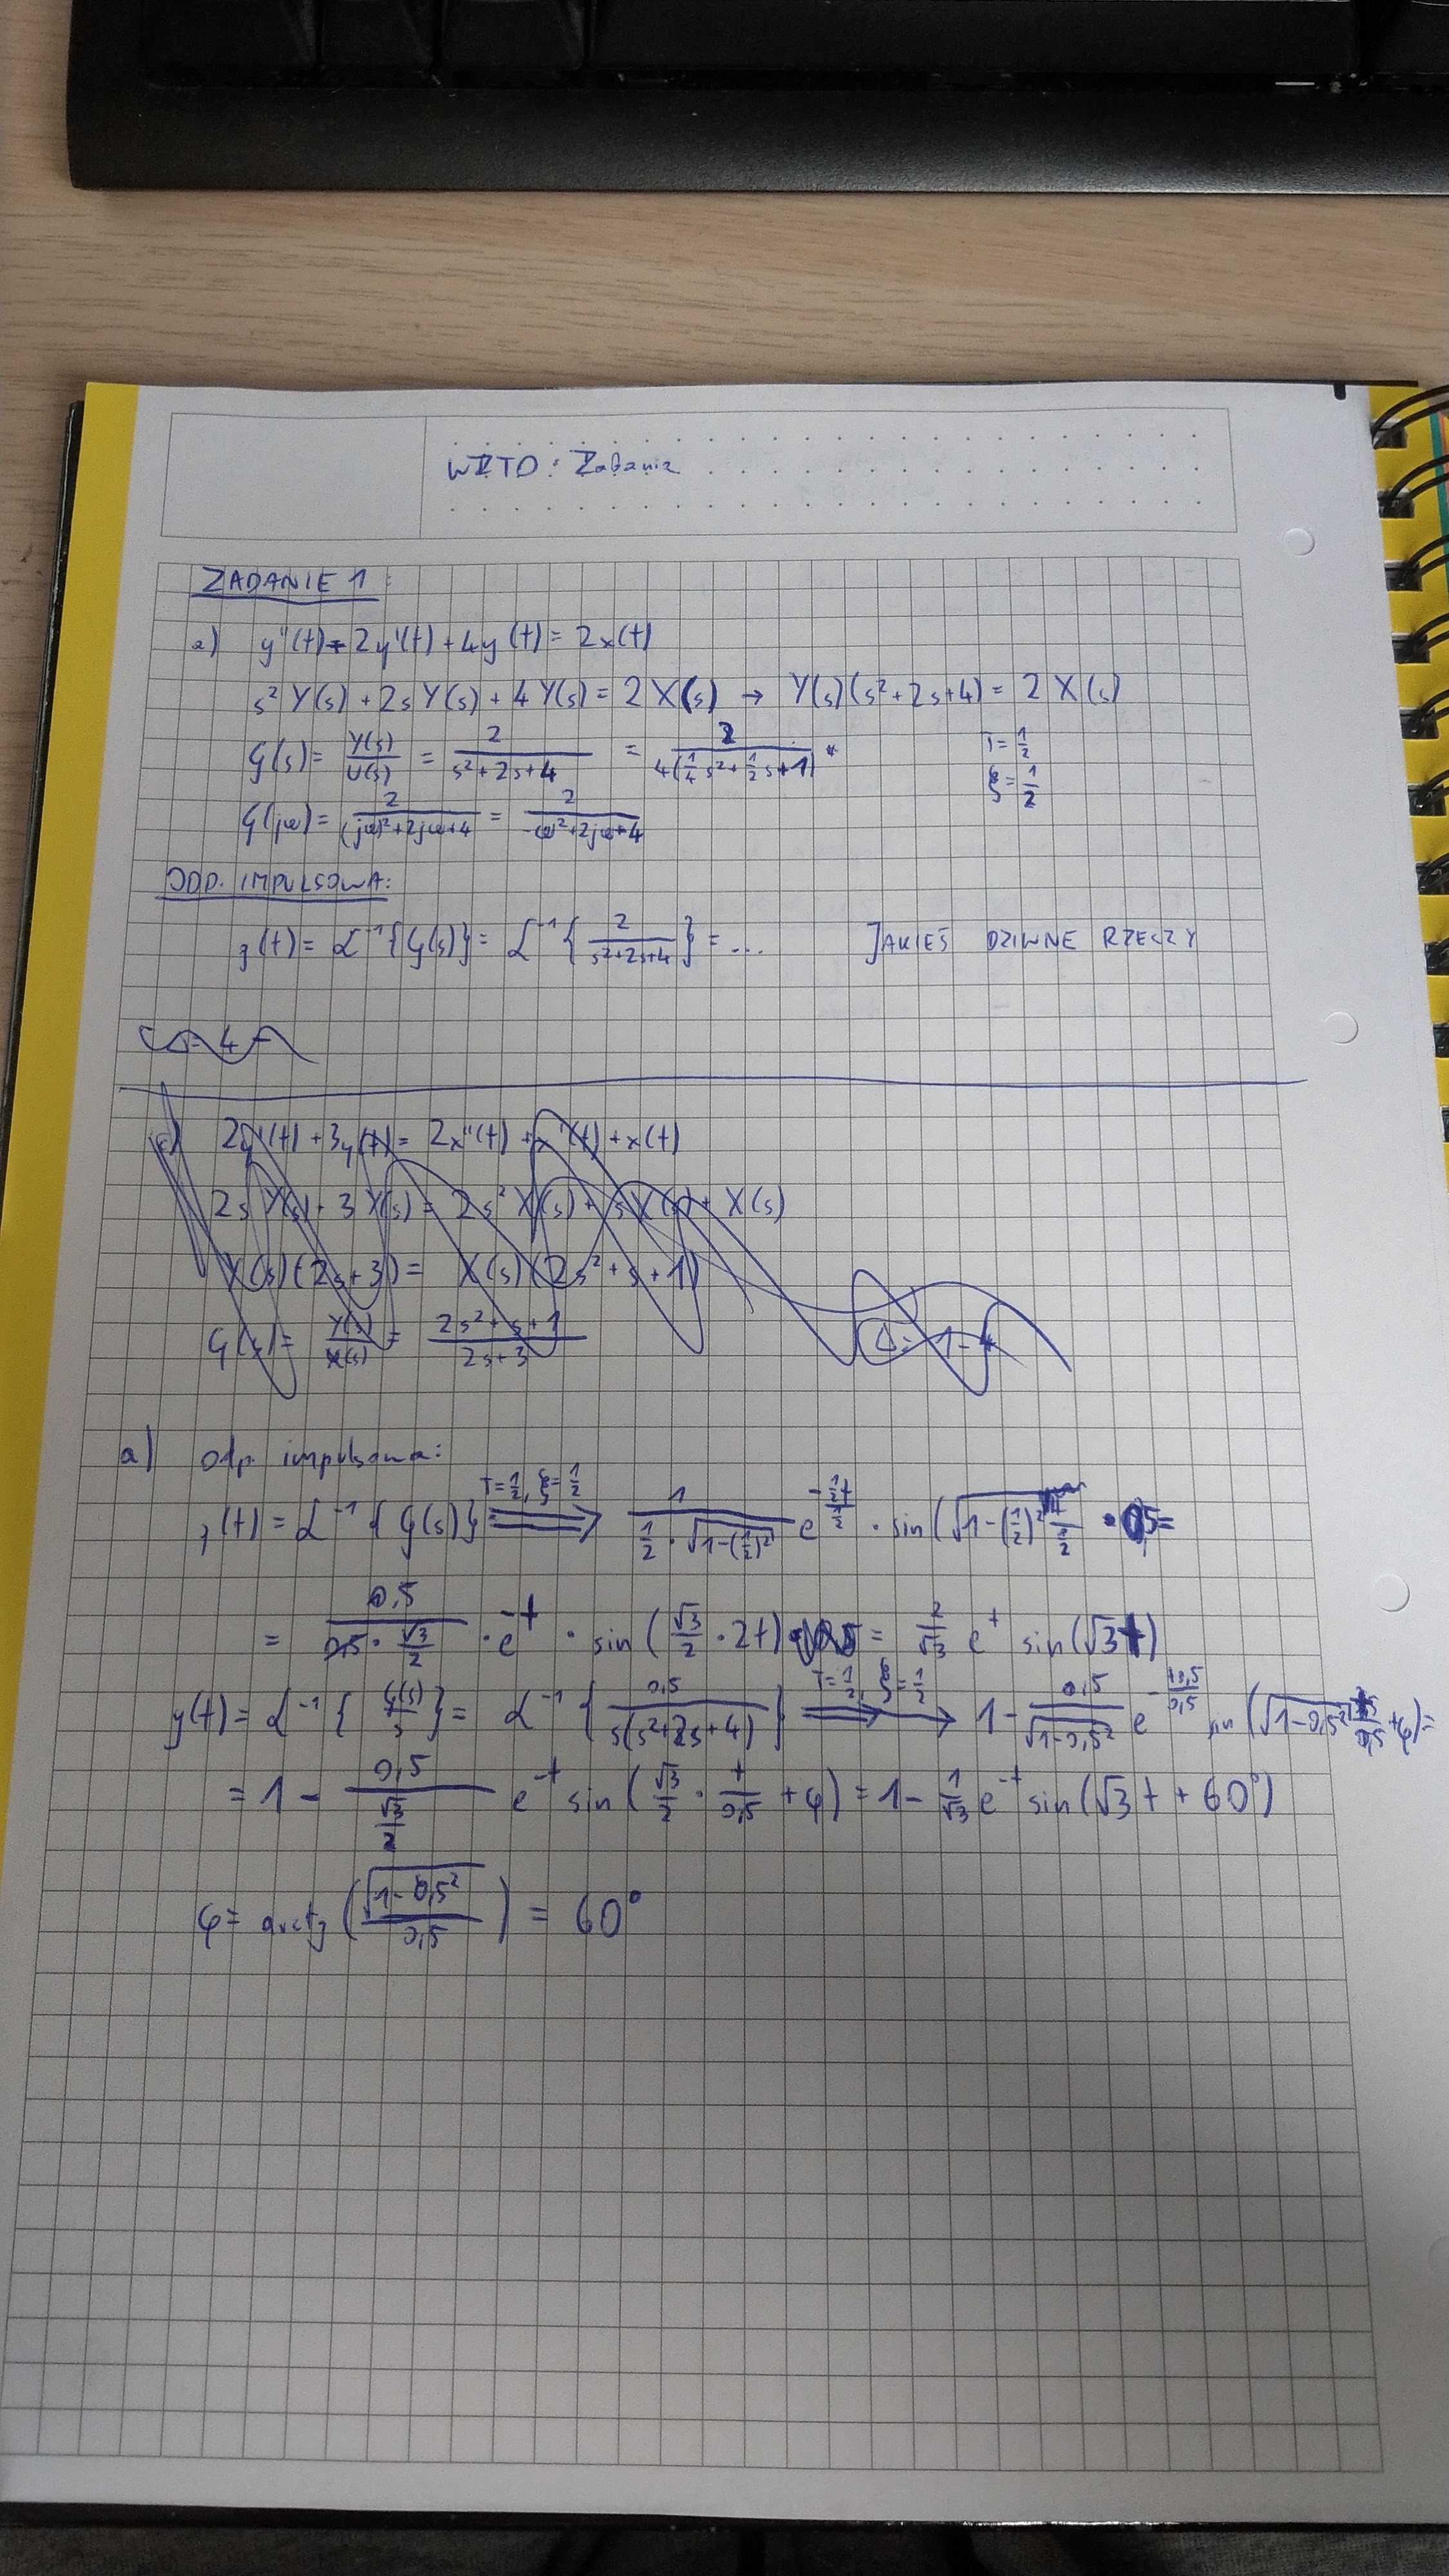 WZTO: Zadania
ZADANIE 1:
a) y''(t)+2y'(t)+4y(t)=2x(t)
s² Y(s)+2s Y(s)+4 Y(s)=2 X(s) → Y(s)(s²+2s+4)=2 X(s)
G(s)= Y(s)/U(s) = 2/(s²+2s+4) = 2/(4(1/4 s²+1/2 s+1)) T=1/2
ξ=1/2
G(jω)= 2/((jω)²+2jω+4) = 2/(-ω²+2jω+4)
ODP. IMPULSOWA:
g(t)= ℒ⁻¹{G(s)}= ℒ⁻¹{2/(s²+2s+4)}=... JAKIEŚ DZIWNE RZECZY
Δ=4-
c) 2y'(t)+3y(t)=2x''(t)+x'(t)+x(t)
2s Y(s)+3 Y(s)=2s² X(s)+s X(s)+X(s)
Y(s)(2s+3)= X(s)(2s²+s+1)
G(s)= Y(s)/X(s) = (2s²+s+1)/(2s+3) Δ=1-4
a) Odp. impulsowa:
g(t)=ℒ⁻¹{G(s)} T=1/2, ξ=1/2 ⟹ 1/(1/2·√(1-(1/2)²)) e^(-(1/2 t)/(1/2)) · sin(√(1-(1/2)²) t/(1/2) · 0,5=
= 0,5/(0,5·√3/2) ·e^(-t) · sin(√3/2 ·2t) = 2/√3 e^t sin(√3t)
y(t)=ℒ⁻¹{G(s)/s}= ℒ⁻¹{0,5/(s(s²+2s+4))} T=1/2, ξ=1/2 ⟹ 1- 0,5/√(1-0,5²) e^(-t0,5/0,5) sin(√(1-0,5²) t/0,5 +φ)=
=1- 0,5/(√3/2) e^(-t) sin(√3/2 · t/0,5 +φ)=1- 1/√3 e^(-t) sin(√3t+60°)
φ= arctg(√(1-0,5²)/0,5) = 60°